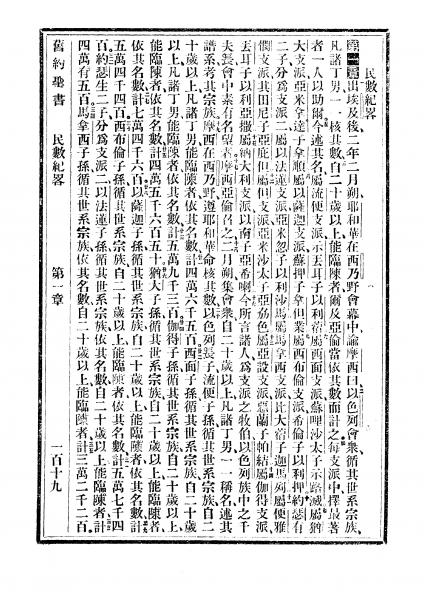 民數紀畧
出埃及後二年二月朔耶和華在西乃野會幕中諭摩西曰以色列會衆循其世系宗族、
凡諸丁男一一核其數自二十歲以上能臨陳者爾及亞倫當依其數而計之每支派中擇最著
者一人以助爾今述其名屬流便支派示丟耳子以利蓿屬西面支派蘇哩沙太子示路蔑屬猶
大支派亞米拿達子拿順屬以薩迦支派蘇押子拿但業屬西布倫支派希倫子以利押約瑟有
二子分爲支派二屬以法蓮支派亞米忽子以利沙馬屬馬拿西支派比大蓿子迦馬列屬便雅
憫支派其田尼子亞庇但屬但支派亞米沙太子亞希色屬亞設支派子帕結屬伽得支派、
丟耳子以利亞撒屬納大利支派以南子亞希喇今所言諸人爲支派之牧伯以色列族中之千
夫長會中素有名望者摩西亞倫召之二月朔集會衆自二十歲以上凡諸丁男一一稱名述其
譜系考其宗族摩西在西乃野遵耶和華命核其數以色列長子流便子孫循其世系宗族自二
十歲以上凡諸丁男能臨陳者依其名數計四萬六千五百西面子孫循其世系宗族自二十歲
以上凡諸丁男能臨陳者依其名數計五萬九千三百伽得子孫循其世系宗族自二十歲以上
能臨陳者依其名數計四萬五千六百五十猶大子孫循其世系宗族自二十歲以上能臨陳者
依其名數計七萬四千六百以薩迦子孫循其世系宗族自二十歲以上能臨陳者依其名數計
五萬四千四百西布倫子孫循其世系宗族自二十歲以上能臨陳者依其名數計五萬七千四
百約瑟生二子分爲支派二以法蓮子孫循其世系宗族依其名數自二十歲以上能臨陳者計
四萬有五百馬拿西子孫循其世系宗族依其名數自二十歲以上能臨陳者計三萬二千二百
舊約聖書 民數紀畧 第一章 一百十九